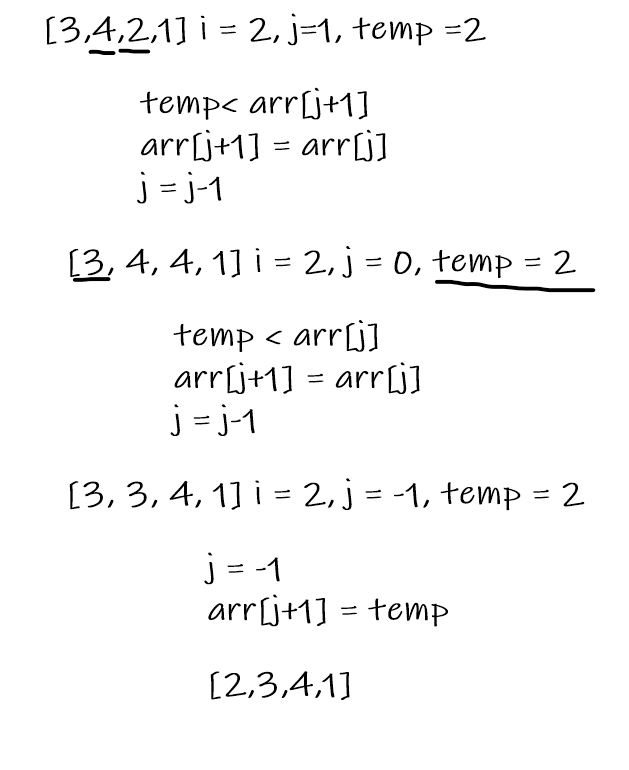 [3,4,2,1] i = 2, j=1, temp =2
temp< arr[j+1]
arr[j+1] = arr[j]
j = j-1
[3, 4, 4, 1] i = 2, j = 0, temp = 2
temp < arr[j]
arr[j+1] = arr[j]
j = j-1
[3, 3, 4, 1] i = 2, j = -1, temp = 2
j = -1
arr[j+1] = temp
[2,3,4,1]